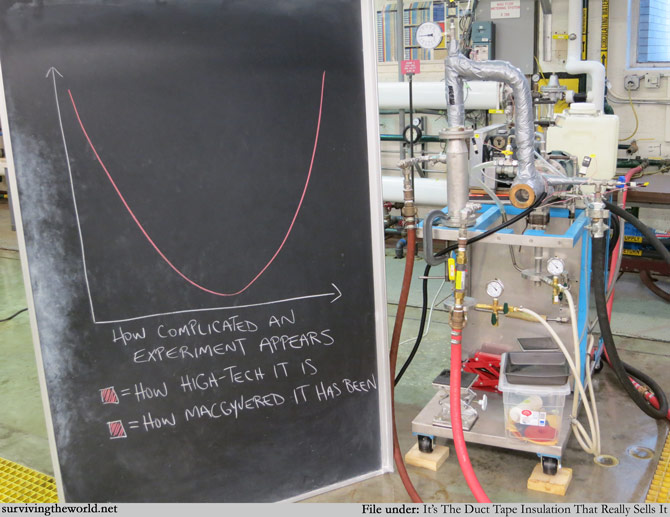 HOW COMPLICATED AN
EXPERIMENT APPEARS
= HOW HIGH-TECH IT IS
= HOW MACGYVERED IT HAS BEEN
survivingtheworld.net
File under: It's The Duct Tape Insulation That Really Sells It